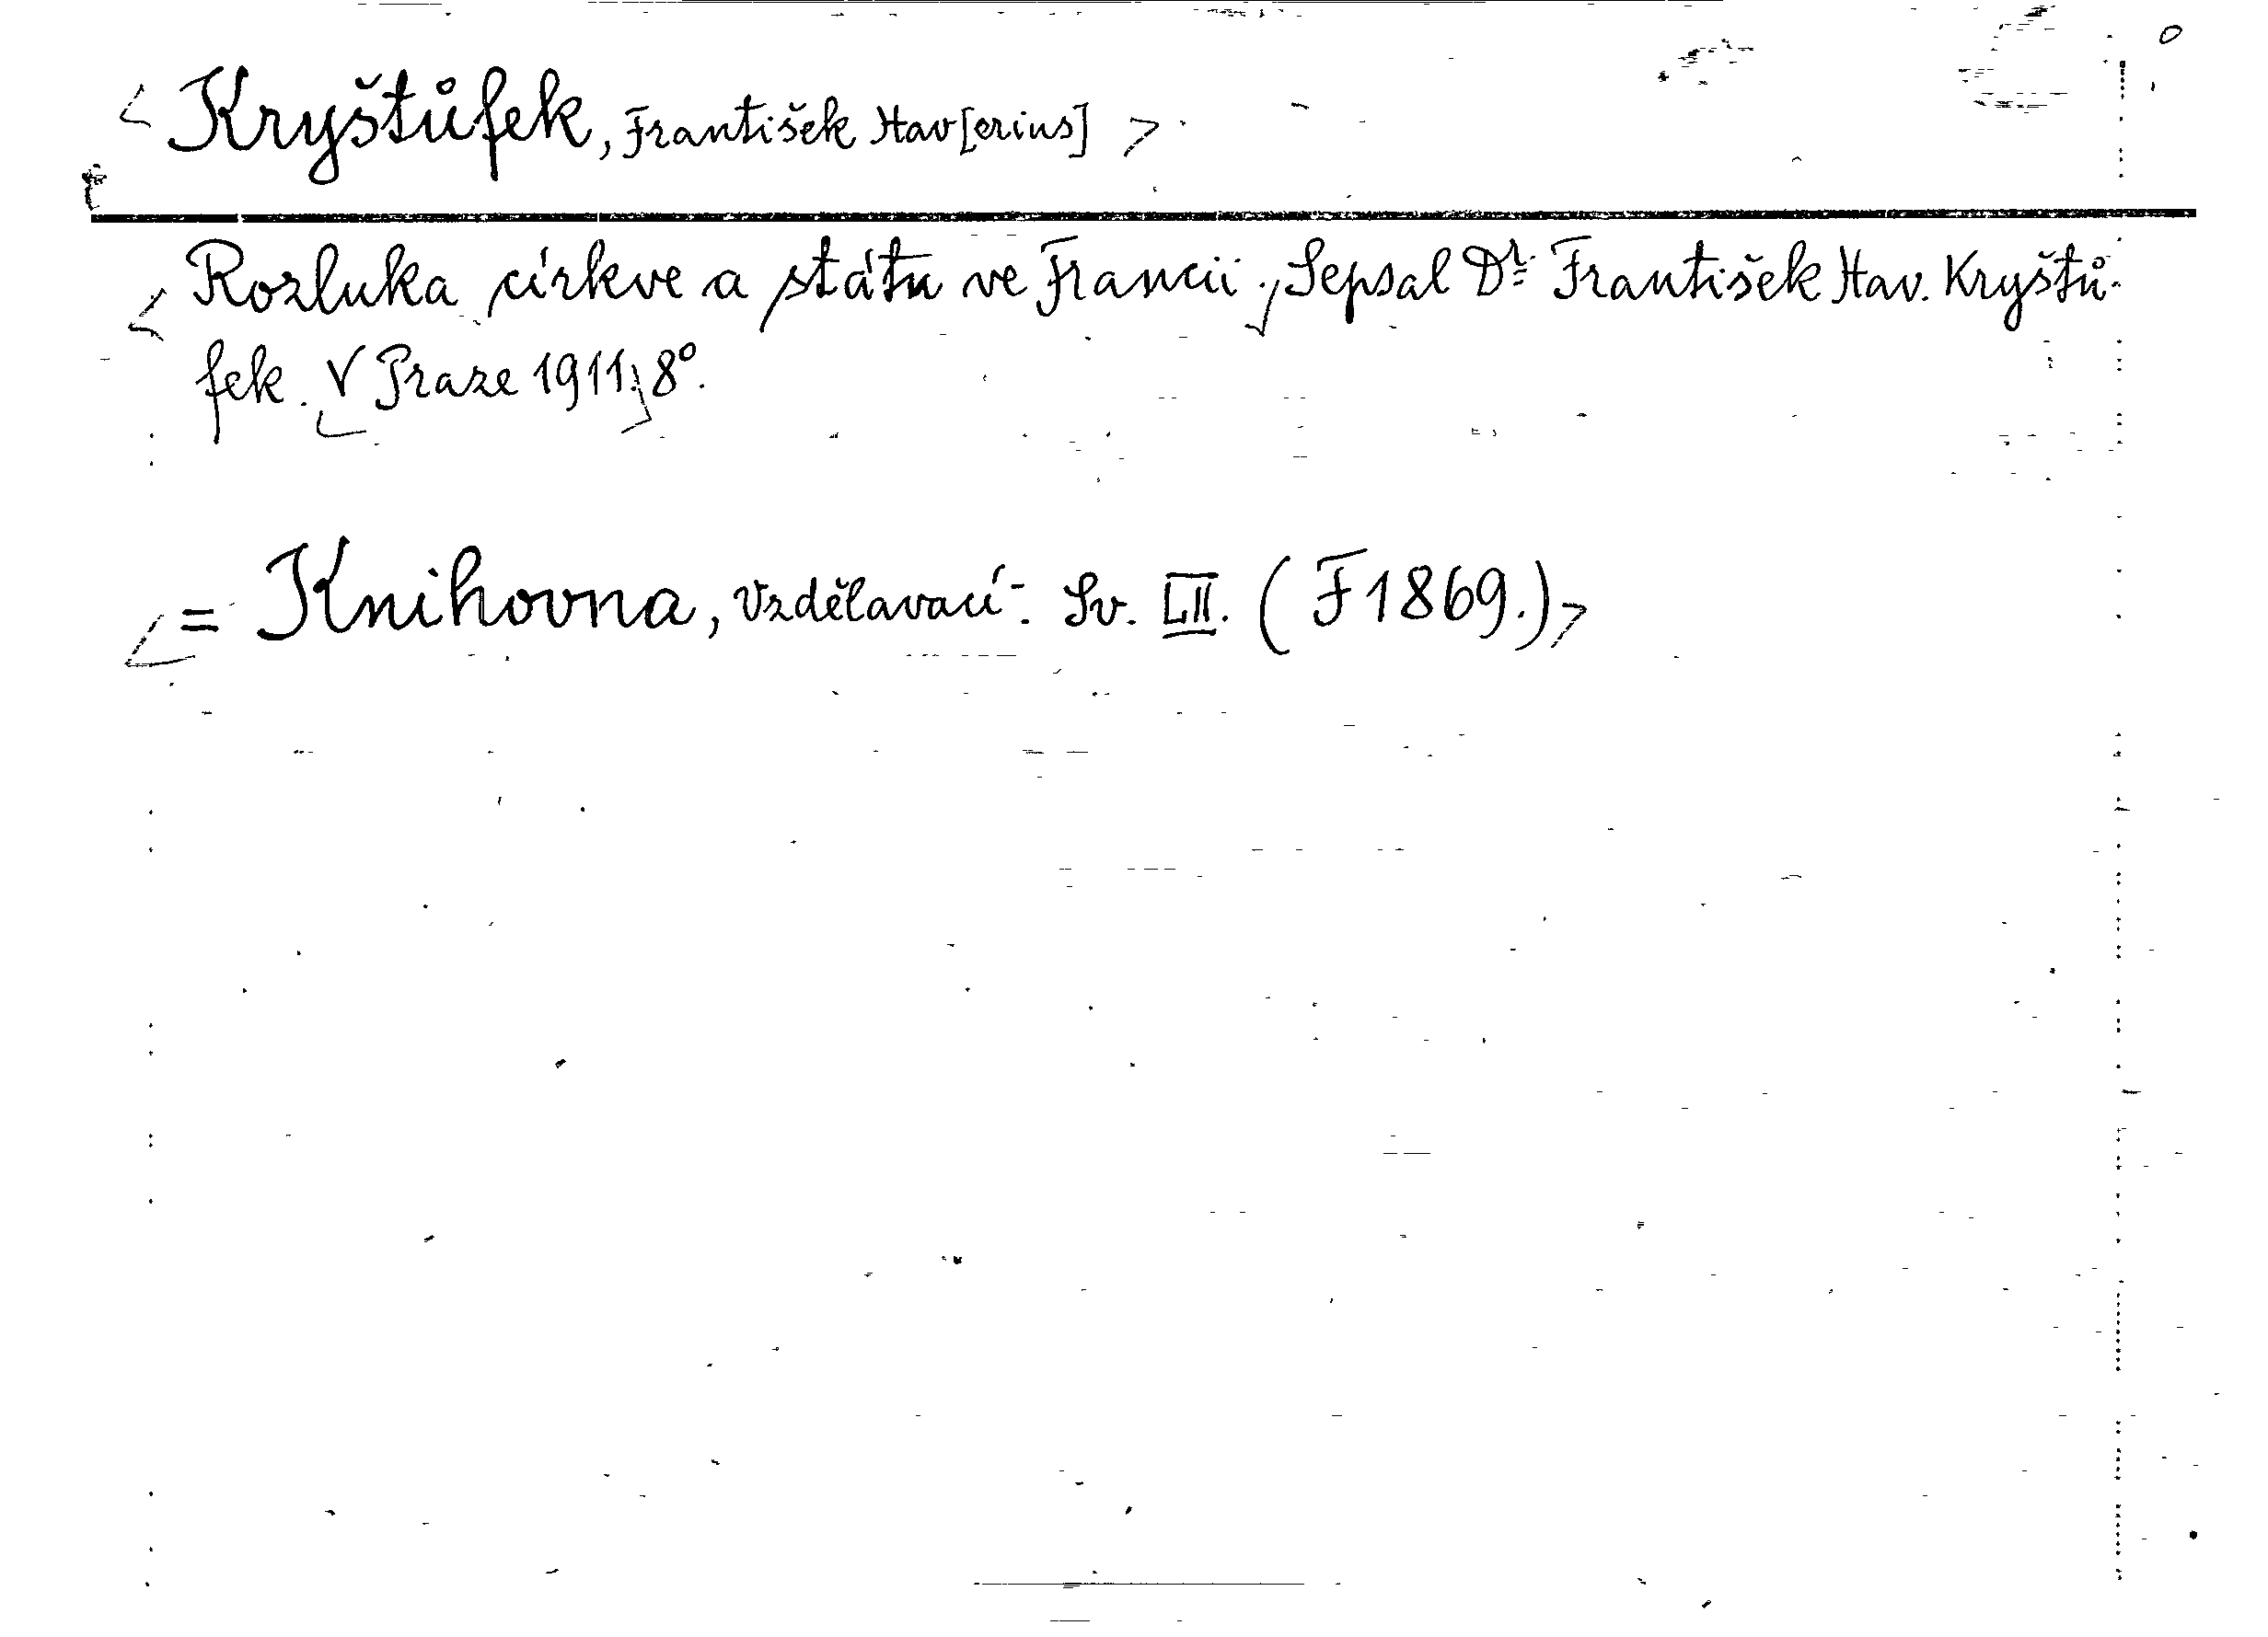 Kryštůfek, František Xav[erius]
Rozluka církve a státu ve Francii. Sepsal Dr. František Xav. Kryštů-
fek. V Praze 1911. 8°.
= Knihovna, Vzdělavací-. Sv. LII. (F 1869.)